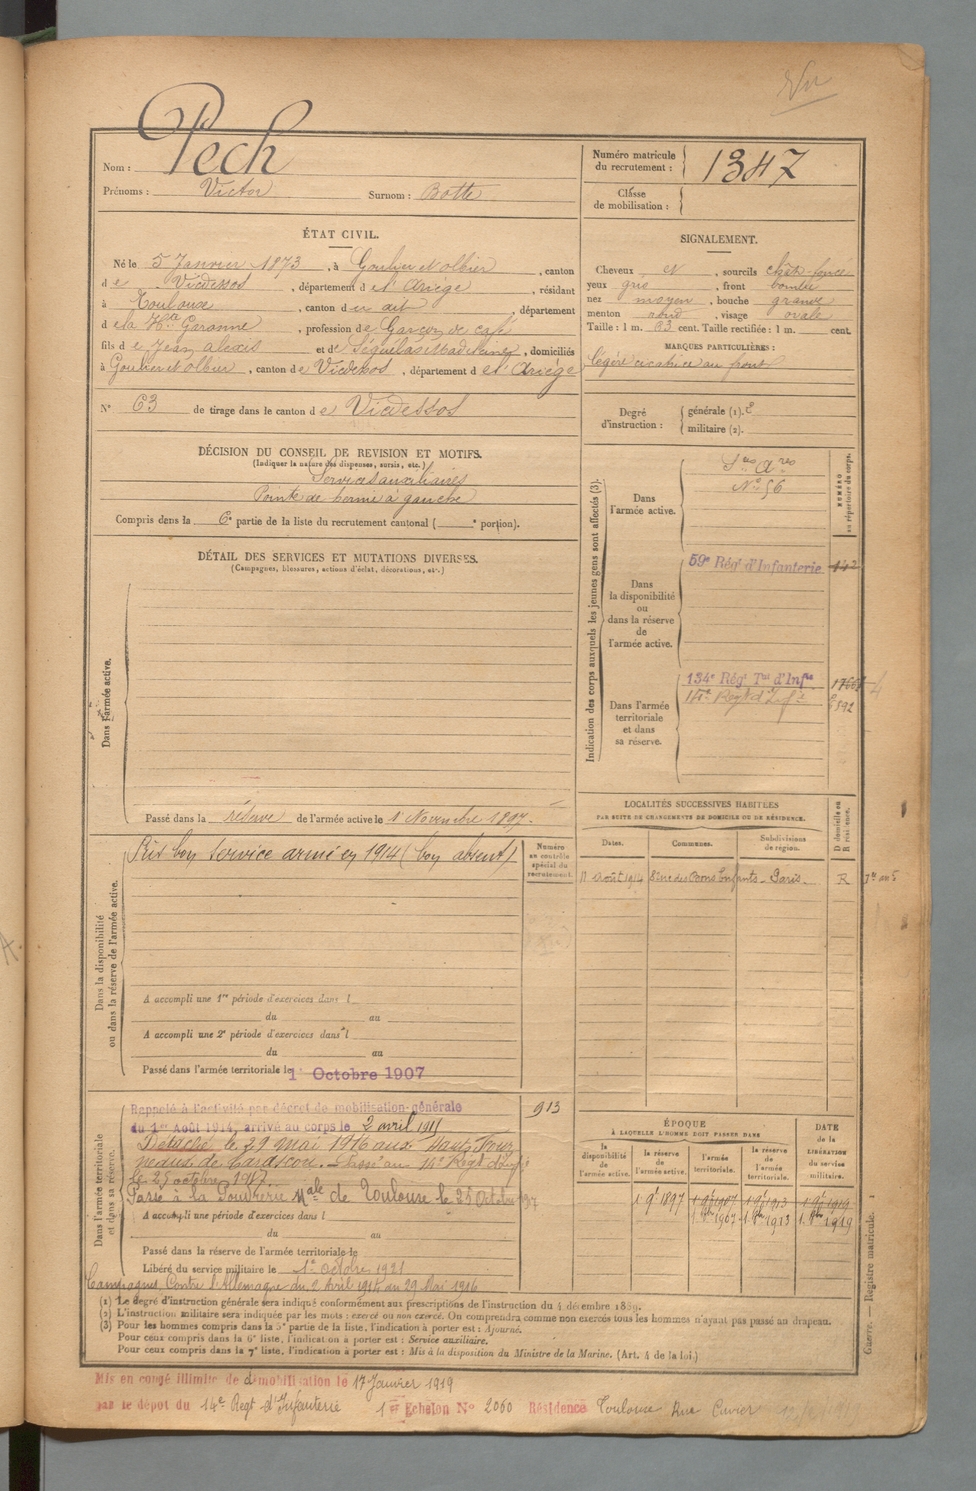 Nom : Pech
Prénoms : Victor Surnom : Botte
Numéro matricule du recrutement : 1347
Classe de mobilisation :
ÉTAT CIVIL.
Né le 5 Janvier 1873, à Goulier et olbier, canton
de Vicdessos, département de l'Ariège, résidant
à Toulouse, canton du dit, département
de la Hte Garonne, profession de Garçon de café
fils de Jean Alexis et de Séguélas Madeleine, domiciliés
à Goulier et olbier, canton de Vicdessos, département de l'Ariège
N° 63 de tirage dans le canton de Vicdessos
SIGNALEMENT.
Cheveux et, sourcils chât. foncé
yeux gris, front bombé
nez moyen, bouche grande
menton rond, visage ovale
Taille : 1 m. 63 cent. Taille rectifiée : 1 m. cent.
MARQUES PARTICULIÈRES :
légère cicatrice au front
Degré d'instruction : générale (1). 2
militaire (2).
DÉCISION DU CONSEIL DE REVISION ET MOTIFS.
(Indiquer la nature des dispenses, sursis, etc.)
Services auxiliaires
Pointe de hernie à gauche
Compris dans la 6e partie de la liste du recrutement cantonal ( e portion).
DÉTAIL DES SERVICES ET MUTATIONS DIVERSES.
(Campagnes, blessures, actions d'éclat, décorations, etc.)
Dans l'armée active.
Passé dans la réserve de l'armée active le 1 Novembre 1897.
Indication des corps auxquels les jeunes gens sont affectés (3).
NUMÉRO au répertoire du corps.
Dans l'armée active.
Sres Ares
N° 56
Dans la disponibilité ou dans la réserve de l'armée active.
59e Régt d'Infanterie 142
Dans l'armée territoriale et dans sa réserve.
134e Régt Tal d'Infie
14e Regt d'Infie
Dans la disponibilité ou dans la réserve de l'armée active.
Numéro au contrôle spécial du recrutement.
Pris bon service armé en 1914 (bon absent)
A accompli une 1re période d'exercices dans l
du au
A accompli une 2e période d'exercices dans l
du au
Passé dans l'armée territoriale le 1 Octobre 1907
LOCALITÉS SUCCESSIVES HABITÉES
PAR SUITE DE CHANGEMENTS DE DOMICILE OU DE RÉSIDENCE.
Dates. Communes. Subdivisions de région. D domicile ou R résidence.
11 Août 1914 8 rue des Bons Enfants - Paris - R
Dans l'armée territoriale et dans sa réserve.
Rappelé à l'activité par décret de mobilisation générale 913
du 1er Août 1914, arrivé au corps le 2 avril 1915
Détaché le 29 mai 1916 aux Hauts Four
neaux de Tarascon. Passé au 14e Régt d'Infie
le 25 octobre 1917.
Passé à la Poudrerie Nale de Toulouse le 25 Octobre 1917
A accompli une période d'exercices dans l
du au
Passé dans la réserve de l'armée territoriale le
Libéré du service militaire le 1e Octobre 1921
Campagnes Contre l'Allemagne du 2 Avril 1915 au 29 Mai 1916
ÉPOQUE
À LAQUELLE L'HOMME DOIT PASSER DANS
DATE de la LIBÉRATION du service militaire.
la disponibilité de l'armée active. la réserve de l'armée active. l'armée territoriale. la réserve de l'armée territoriale.
1 9e 1897 1 9e 1907 1 9e 1913 1 9e 1919
1 8bre 1907 1 8bre 1913 1 8bre 1919
(1) Le degré d'instruction générale sera indiqué conformément aux prescriptions de l'instruction du 4 décembre 1889.
(2) L'instruction militaire sera indiquée par les mots : exercé ou non exercé. On comprendra comme non exercés tous les hommes n'ayant pas passé au drapeau.
(3) Pour les hommes compris dans la 5e partie de la liste, l'indication à porter est : Ajourné.
Pour ceux compris dans la 6e liste, l'indication à porter est : Service auxiliaire.
Pour ceux compris dans la 7e liste, l'indication à porter est : Mis à la disposition du Ministre de la Marine. (Art. 4 de la loi.)
Guerre. — Registre matricule. 1
Mis en congé illimité de démobilisation le 17 Janvier 1919
par le dépôt du 14e Regt d'Infanterie 1er Echelon N° 2060 Résidence Toulouse Rue Cuvier